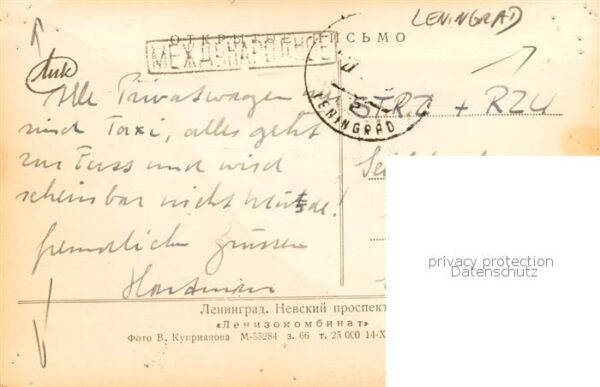 LENINGRAD
ОТКРЫТОЕ ПИСЬМО
МЕЖДУНАРОДНОЕ
LENINGRAD
Alle Privatwagen
sind Taxi, alles geht
zu Fuss und wird
scheinbar nicht müde!
freundliche Grüssen
Hartmann
STRZ + RZU
privacy protection
Datenschutz
Ленинград. Невский проспект
«Ленизокомбинат»
Фото В. Куприянова М-55284 з. 66 т. 25 000 14-X